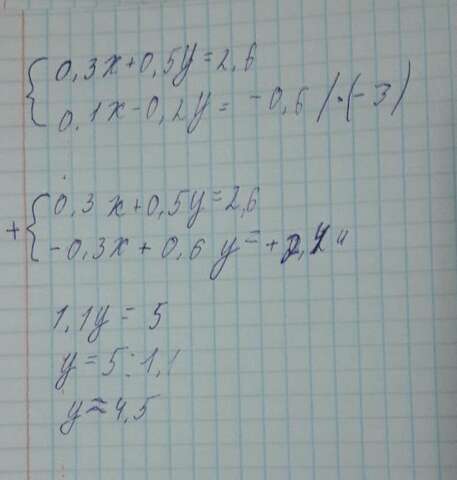 0,3x+0,5y=2,6
0,1x-0,2y= -0,6 /·(-3)
+
0,3x+0,5y=2,6
-0,3x+0,6y=+
1,1y=5
y=5:1,1
y≈4,5